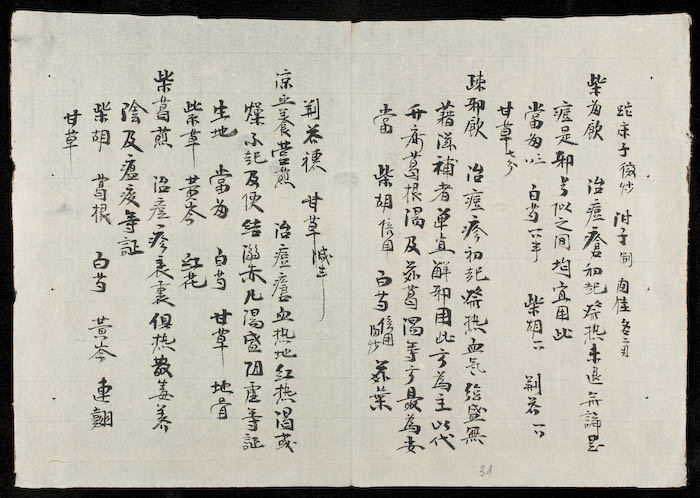 蛇床子微炒 附子制 肉桂各二両
柴歸飲 治痘瘡初起發热未退無論是
痘是邪疑似之間均宜用此
當歸 白芍 柴胡 荆芥
甘草七分
疎邪飲 治痘疹初起發热血氣強盛無
藉滋補者單宜解邪用此方為主以代
升麻葛根湯及蘇葛湯等方最為妥
當 柴胡倍用 白芍倍用酒炒 蘇葉
荆芥穗 甘草減半
凉血養营煎 治痘瘡血热地红热渴或
燥不起及便結溺赤凡陽盛陰虚等証
生地 當歸 白芍 甘草 地骨
紫草 黄芩 红花
柴葛煎 治痘疹表裏俱热散毒養
陰及瘟疫等証
柴胡 葛根 白芍 黄芩 連翹
甘草
31